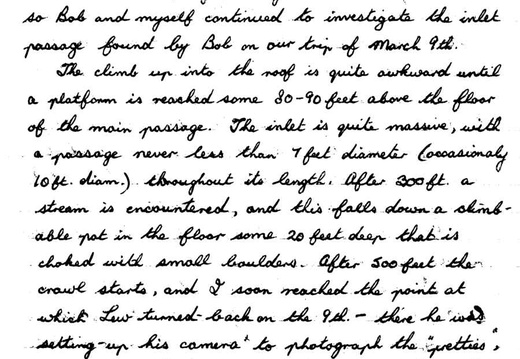 so Bob and myself continued to investigate the inlet
passage found by Bob on our trip of March 9th.
The climb up into the roof is quite awkward until
a platform is reached some 80-90 feet above the floor
of the main passage. The inlet is quite massive, with
a passage never less than 7 feet diameter (occasionaly
10 ft. diam.) throughout its length. After 300 ft. a
stream is encountered, and this falls down a climb-
able pot in the floor some 20 feet deep that is
choked with small boulders. After 500 feet the
crawl starts, and I soon reached the point at
which Lew turned back on the 9th. - there he was
setting-up his camera to photograph the "pretties",